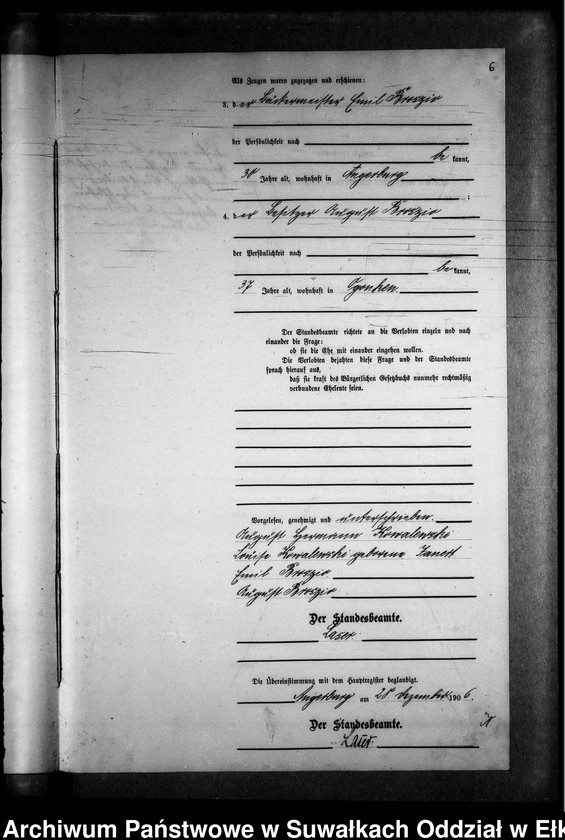 6
Als Zeugen waren zugezogen und erschienen:
3. der Bäckermeister Emil Broszio
der Persönlichkeit nach
be kannt,
30 Jahre alt, wohnhaft in Angerburg
;
4. der Besitzer August Broszio
der Persönlichkeit nach
be kannt,
37 Jahre alt, wohnhaft in Ogonken.
Der Standesbeamte richtete an die Verlobten einzeln und nach
einander die Frage:
ob sie die Ehe mit einander eingehen wollen.
Die Verlobten bejahten diese Frage und der Standesbeamte
sprach hierauf aus,
daß sie kraft des Bürgerlichen Gesetzbuchs nunmehr rechtmäßig
verbundene Eheleute seien.
Vorgelesen, genehmigt und unterschrieben.
August Hermann Kowalewski
Louise Kowalewski geborene
Emil Broszio
August Broszio.
Der Standesbeamte.
Laser.
Die Übereinstimmung mit dem Hauptregister beglaubigt.
Angerburg am 28. Dezember 1906.
Der Standesbeamte.
Archiwum Państwowe w Suwałkach Oddział w Ełk